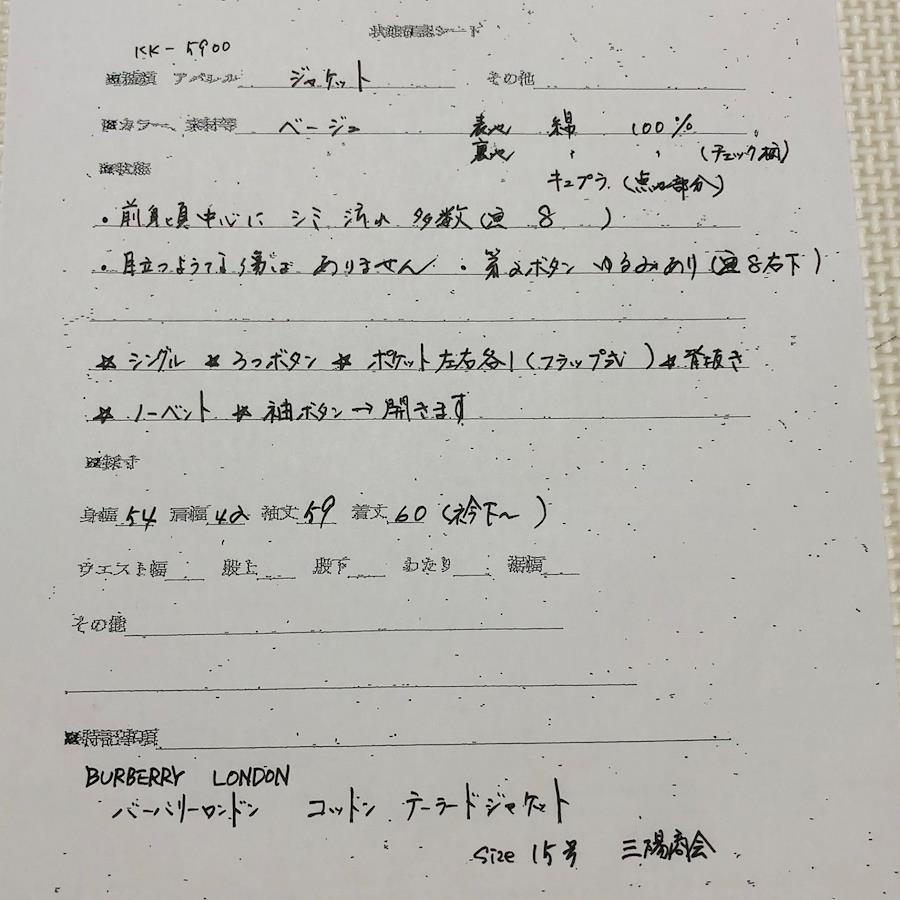 状態確認シート
KK-5900
■種類 アパレル ジャケット その他
■カラー、素材等 ベージュ 表地 綿 100%
裏地 〃 〃 (チェック柄)
■状態 キュプラ (点線部分)
・前身頃中心に シミ 流れ 多数(画 8 )
・目立つような傷は ありません ・第2ボタン ゆるみあり(画8右下)
☆シングル ☆3つボタン ☆ポケット左右各1(フラップ式)☆背抜き
☆ノーベント ☆袖ボタン→開きます
■採寸
身幅 54 肩幅 42 袖丈 59 着丈 60 (衿下〜 )
ウエスト幅 股上 股下 わたり 裾幅
その他
■特記事項
BURBERRY LONDON
バーバリーロンドン コットン テーラードジャケット
size 15号 三陽商会